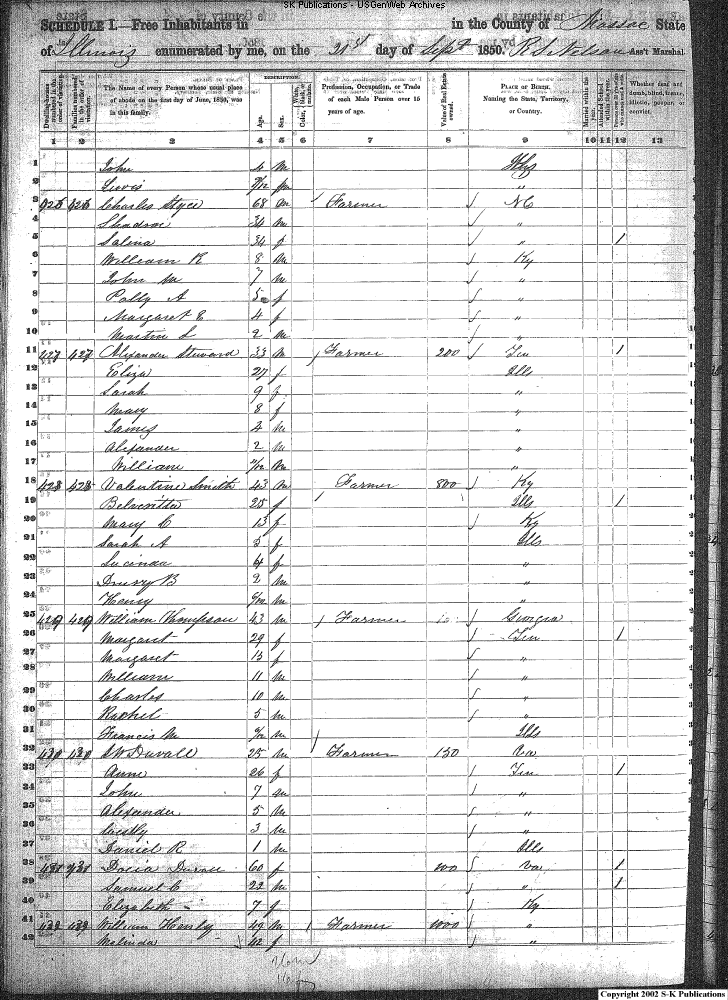 SK Publications - USGenWeb Archives
SCHEDULE I.—Free Inhabitants in in the County of Massac State
of Illinois enumerated by me, on the 21st day of Sept 1850. R S Nelson Ass't Marshal.
Dwelling-houses numbered in the order of visitation.
Families numbered in the order of visitation.
The Name of every Person whose usual place of abode on the first day of June, 1850, was in this family.
DESCRIPTION.
Age.
Sex.
Color, White, black, or mulatto.
Profession, Occupation, or Trade of each Male Person over 15 years of age.
Value of Real Estate owned.
PLACE OF BIRTH. Naming the State, Territory, or Country.
Married within the year.
Attended School within the year.
Whether deaf and dumb, blind, insane, idiotic, pauper, or convict.
1 2 3 4 5 6 7 8 9 10 11 12 13
1 John 4 m Ills
2 Lewis 7/12 m "
3 426 426 Charles Styce 68 m Farmer NC
4 34 m "
5 Salina 34 f " 1
6 William R 8 m Ky
7 John M 7 m "
8 Polly A 5 f "
9 Margaret E 4 f "
10 Martin L 2 m "
11 427 427 Alexander Steward 33 m Farmer 200 Ten 1
12 Eliza 27 f Ills
13 Sarah 9 f "
14 Mary 8 f "
15 James 4 m "
16 Alexander 2 m "
17 William 2/12 m "
18 428 428 Valentine Smith 43 m Farmer 800 Ky
19 25 f Ills 1
20 Mary C 13 f Ky
21 Sarah A 5 f Ills
22 Lucinda 4 f "
23 Drury B 2 m "
24 Henry m "
25 429 429 William Thompson 43 m Farmer Georgia
26 Margaret 29 f Ten 1
27 Margaret 13 f "
28 William 11 m "
29 Charles 10 m "
30 Rachel 5 m "
31 Francis M m Ills
32 430 430 Duvall 25 m Farmer 150 Va
33 Anne 26 f Ten 1
34 John 7 m "
35 Alexander 5 m "
36 3 m "
37 Daniel R 1 m Ills
38 431 431 Docia Duvall 60 f Va 1
39 Samuel C 22 m " 1
40 Elizabeth 7 f Ky
41 432 432 William Henly 49 m Farmer 1000 "
42 Malinda 42 f "
Copyright 2002 S-K Publications